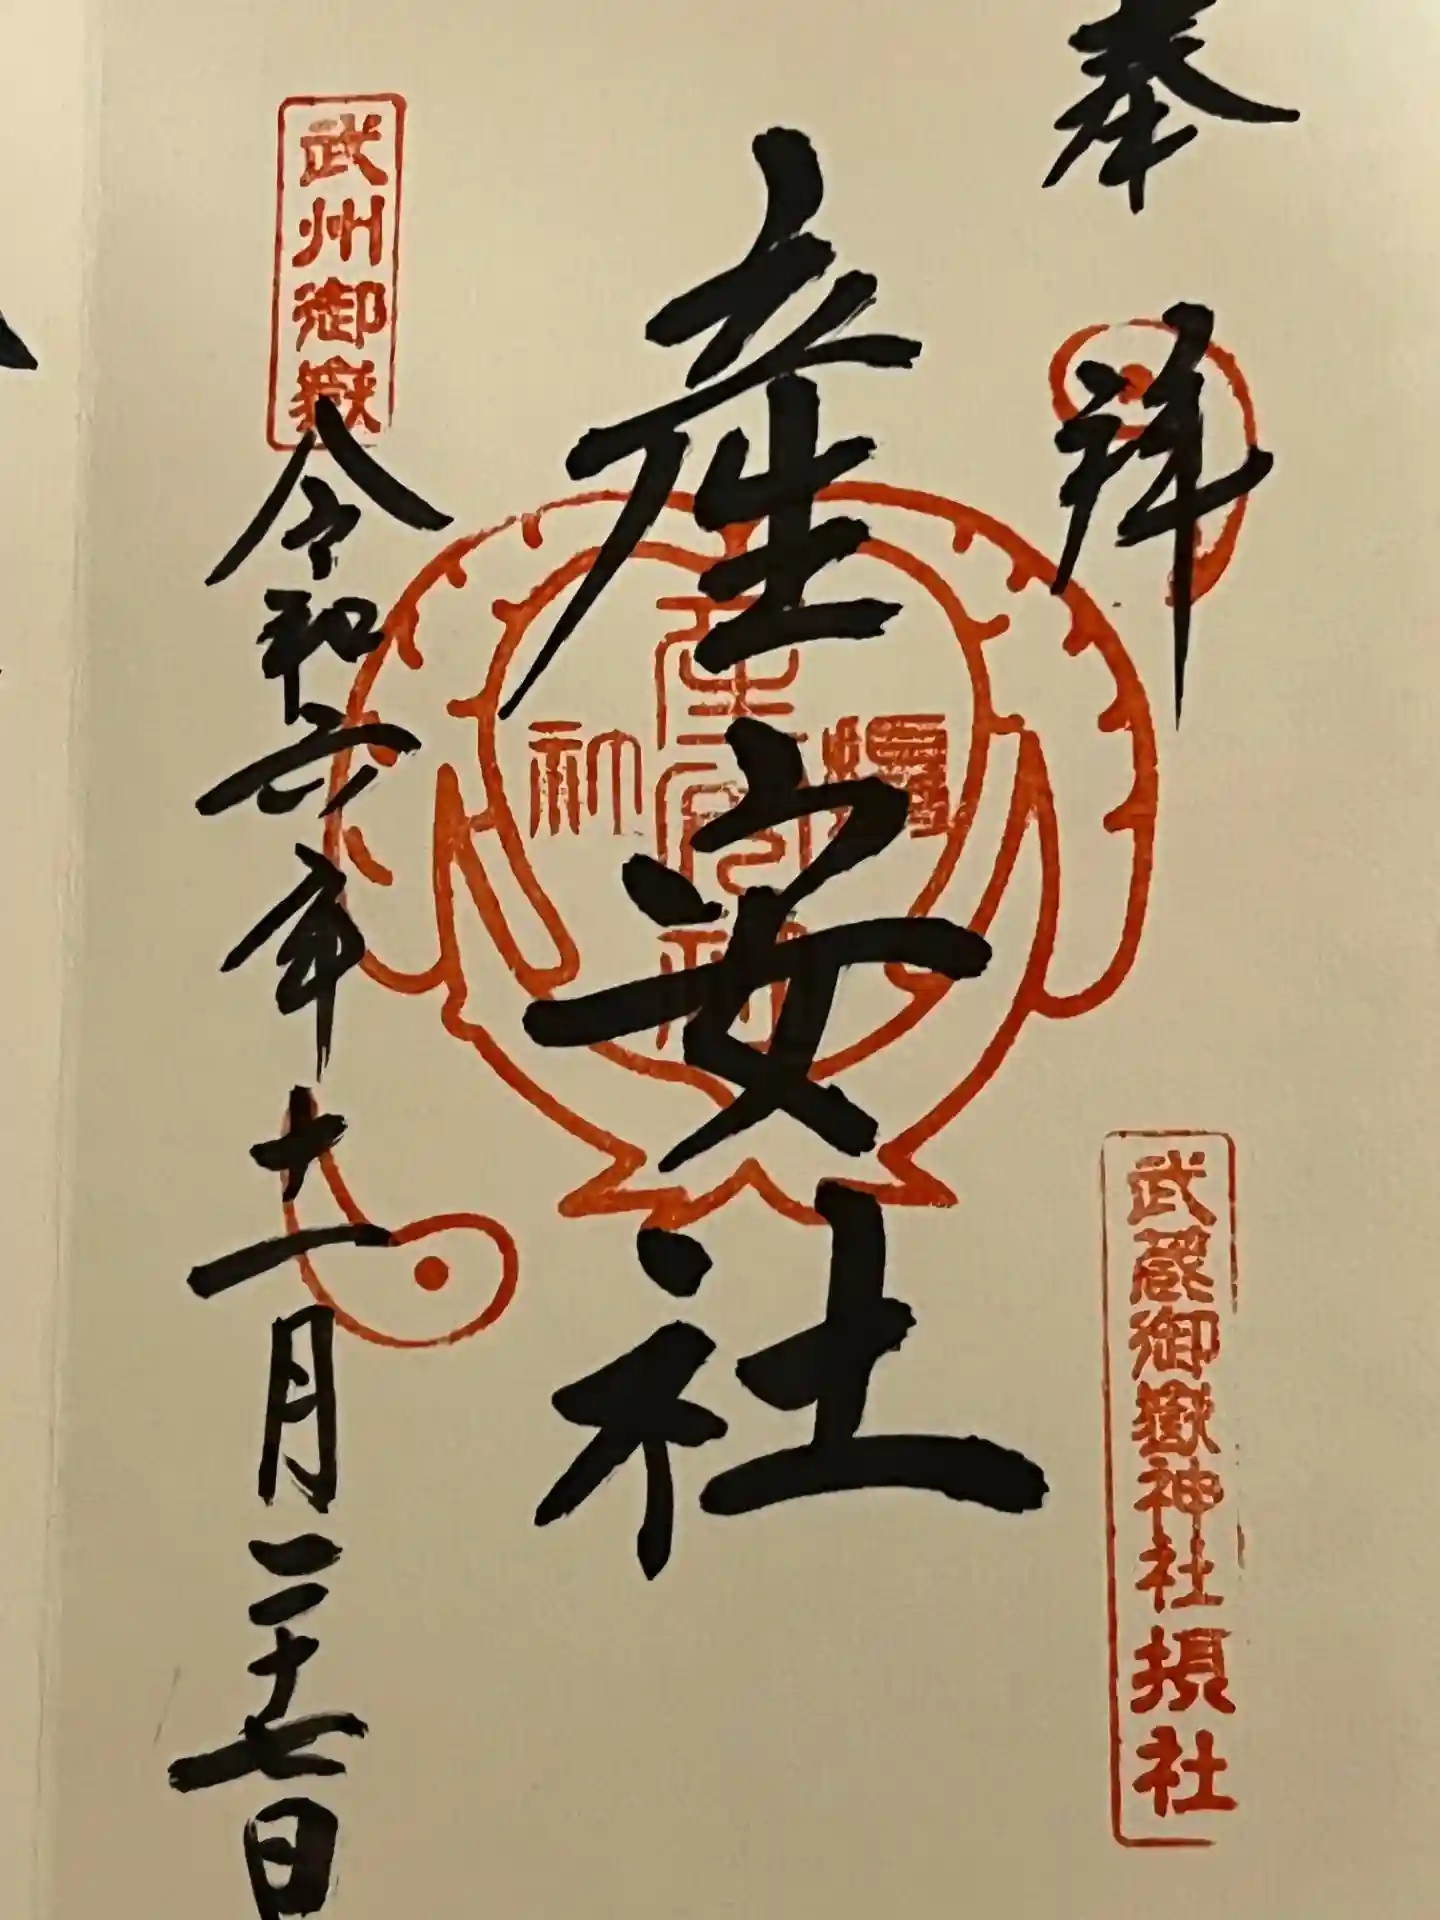 奉拝
武蔵御嶽神社摂社
産安社
武州御嶽
令和六年十一月二十七日